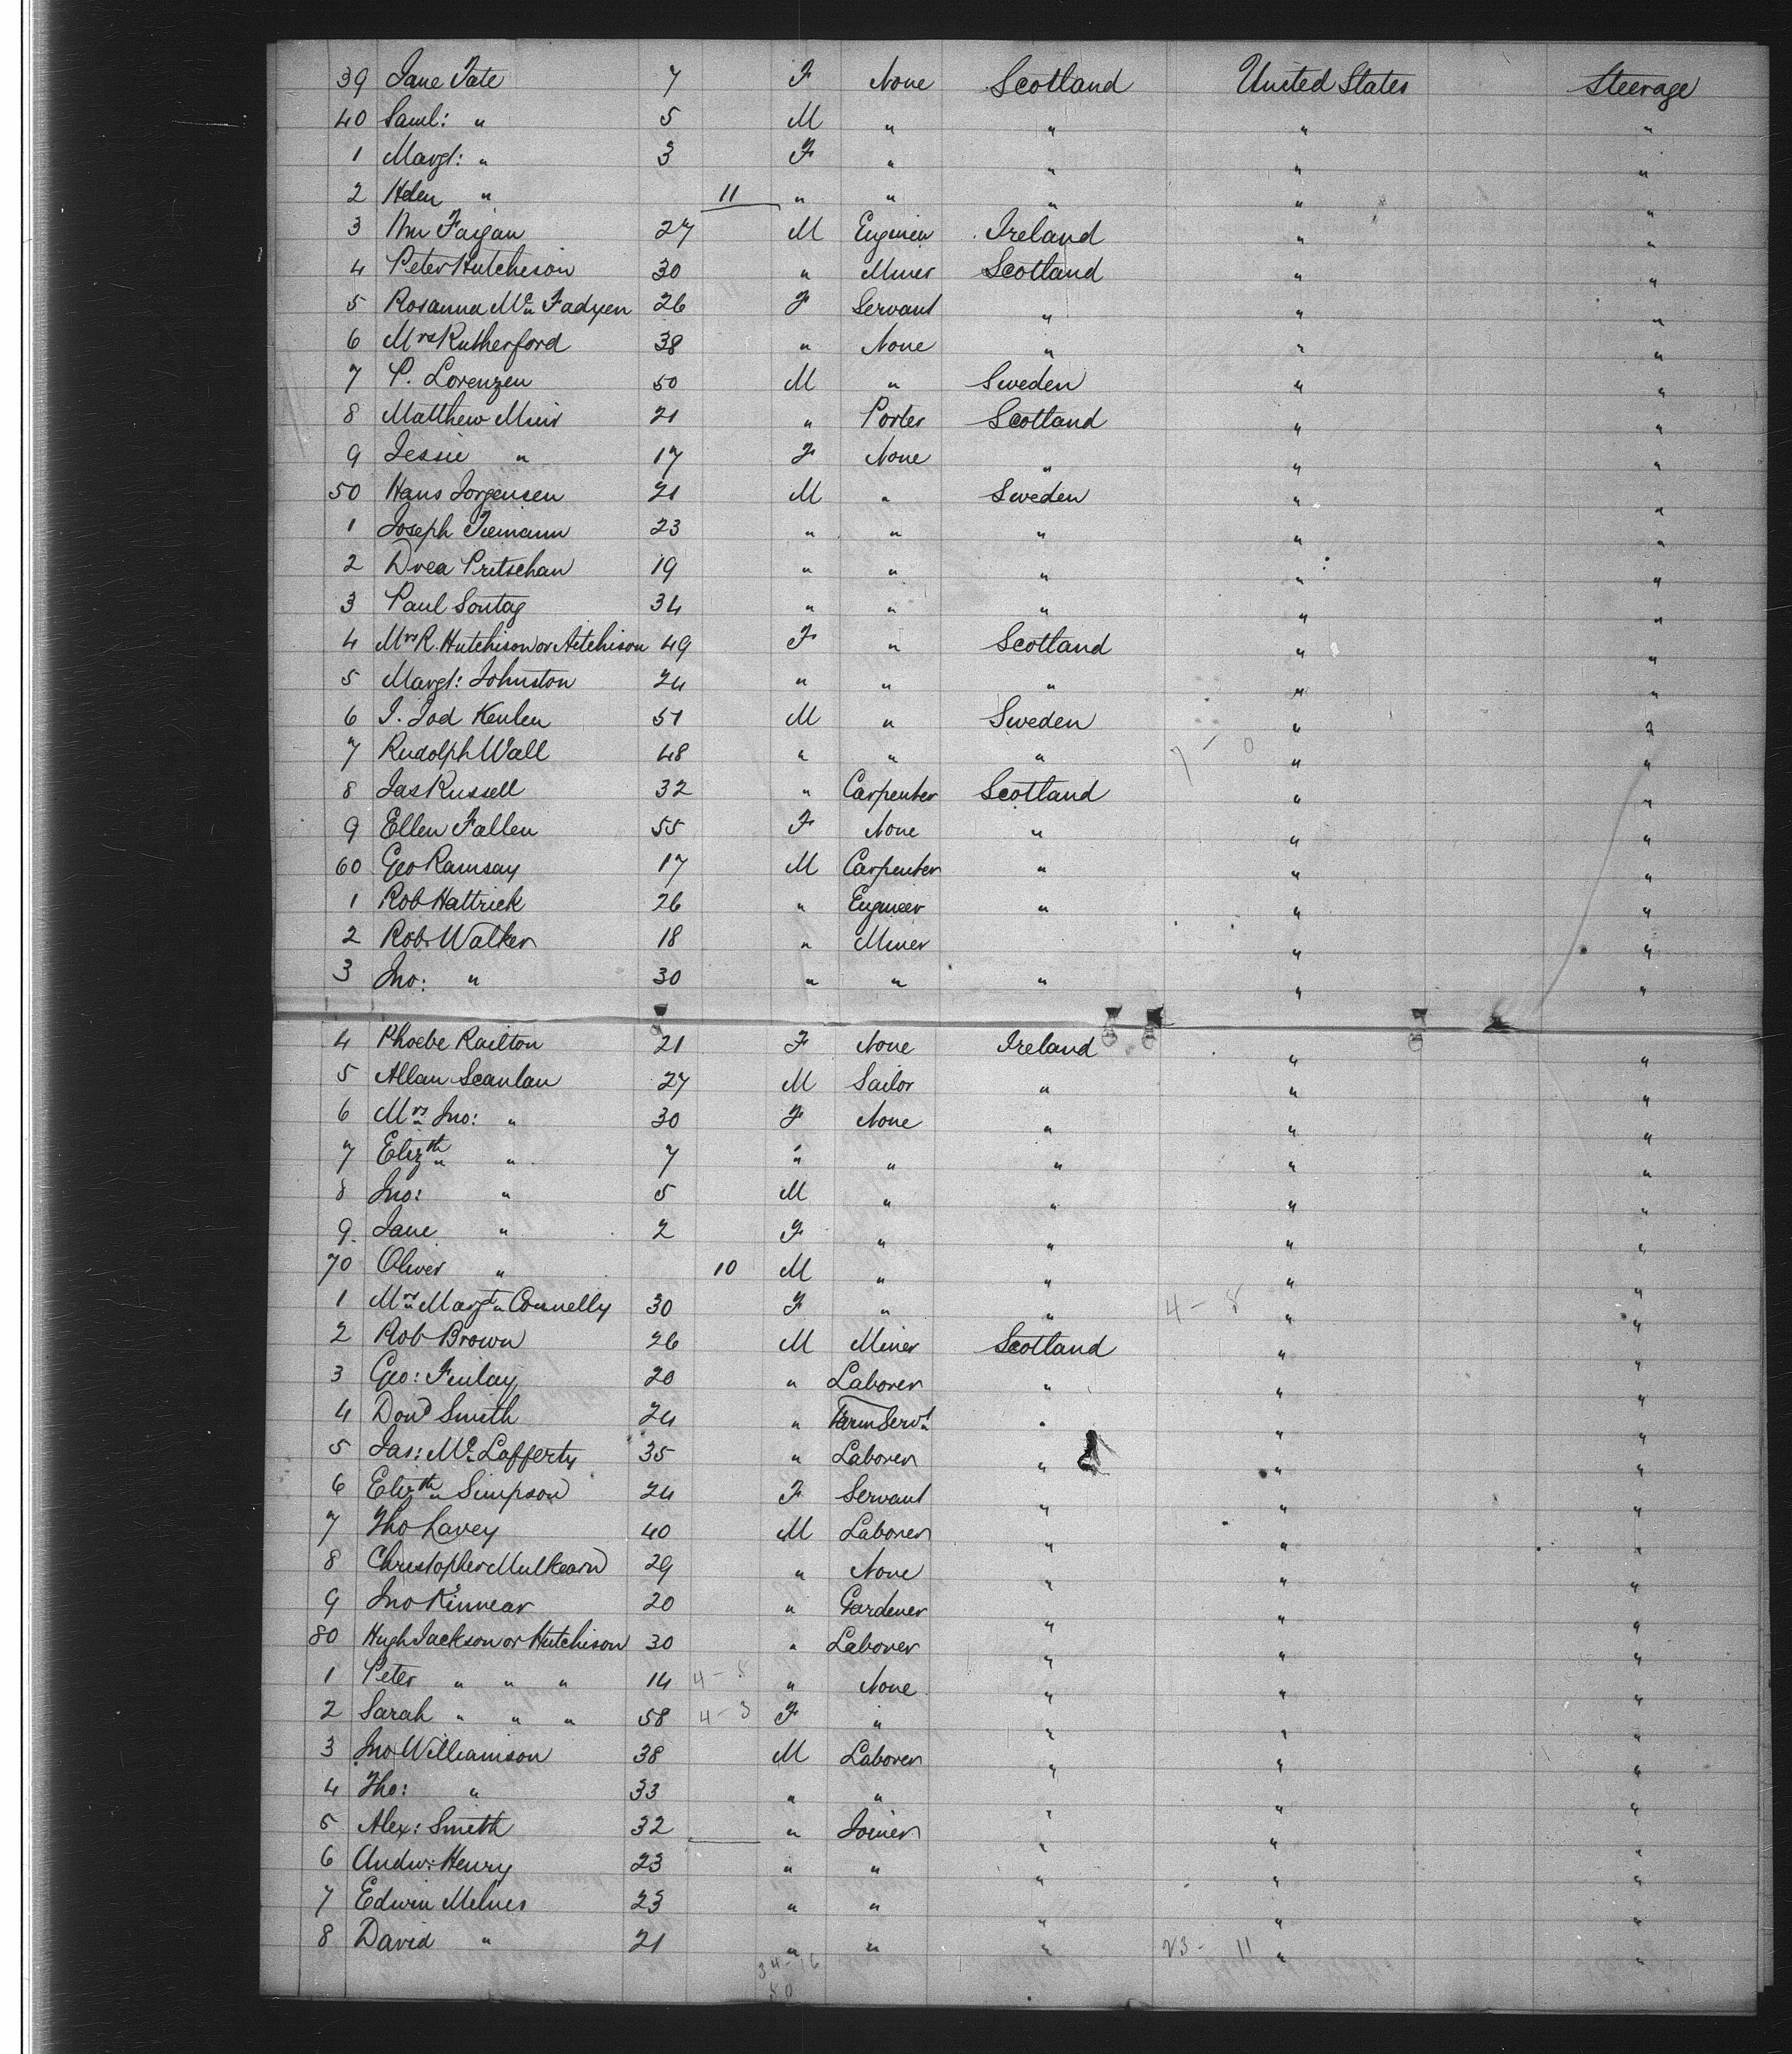 39 Jane Tate 7 F None Scotland United States Steerage
40 Saml: " 5 M " " " "
1 Margt: " 3 F " " " "
2 Helen " 11 " " " " "
3 Wm Fagan 27 M Engineer Ireland " "
4 Peter Hutcheson 30 " Miner Scotland " "
5 Rosanna Mc Fadyen 26 F Servant " " "
6 Mrs Rutherford 38 " None " " "
7 P. Lorenzen 50 M " Sweden " "
8 Matthew Muir 21 " Porter Scotland " "
9 Jessie " 17 F None " " "
50 Hans Jorgensen 21 M " Sweden " "
1 Joseph Tiemann 23 " " " " "
2 Dvea Pritschan 19 " " " " "
3 Paul Sontag 34 " " " " "
4 Mrs R. Hutchison or Aitchison 49 F " Scotland " "
5 Margt: Johnston 24 " " " " "
6 I. Jod Keulen 51 M " Sweden " "
7 Rudolph Wall 48 " " " 7 - 0 " "
8 Jas Russell 32 " Carpenter Scotland " "
9 Ellen Fallen 55 F None " " "
60 Geo Ramsay 17 M Carpenter " " "
1 Rob Hattrick 26 " Engineer " " "
2 Rob. Walker 18 " Miner " "
3 Jno: " 30 " " " " "
4 Phoebe Railton 21 F None Ireland " "
5 Allan Scanlan 27 M Sailor " " "
6 Mrs Jno: " 30 F None " " "
7 Elizth " 7 " " " " "
8 Jno: " 5 M " " " "
9 Jane " 2 F " " " "
70 Oliver " 10 M " " " "
1 Mrs Margt Connelly 30 F " " 4 - 8 " "
2 Rob Brown 26 M Miner Scotland " "
3 Geo: Finlay 20 " Laborer " " "
4 Dond Smith 24 " Farm Servt " " "
5 Jas: Mc Lafferty 35 " Laborer " " "
6 Elizth Simpson 24 F Servant " " "
7 Tho Lavey 40 M Laborer " " "
8 Christopher Mulkearn 29 " None " " "
9 Jno Kinnear 20 " Gardener " " "
80 Hugh Jackson or Hutchison 30 " Laborer " " "
1 Peter " " " 14 4 - 8 " None " " "
2 Sarah " " " 58 4 - 3 F " " " "
3 Jno Williamson 38 M Laborer " " "
4 Tho: " 33 " " " " "
5 Alex: Smith 32 " Joiner " " "
6 Andw: Henry 23 " " " " "
7 Edwin Milnes 23 " " " " "
8 David " 21 " " " 23 - 11 " "
34 - 16
50